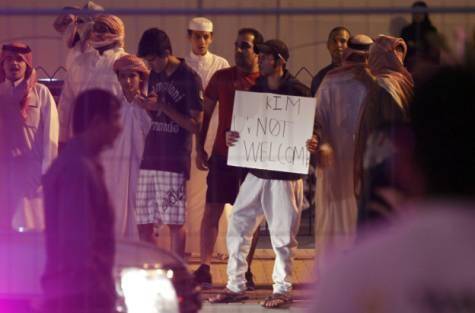 KIM
IS NOT
WELCOME